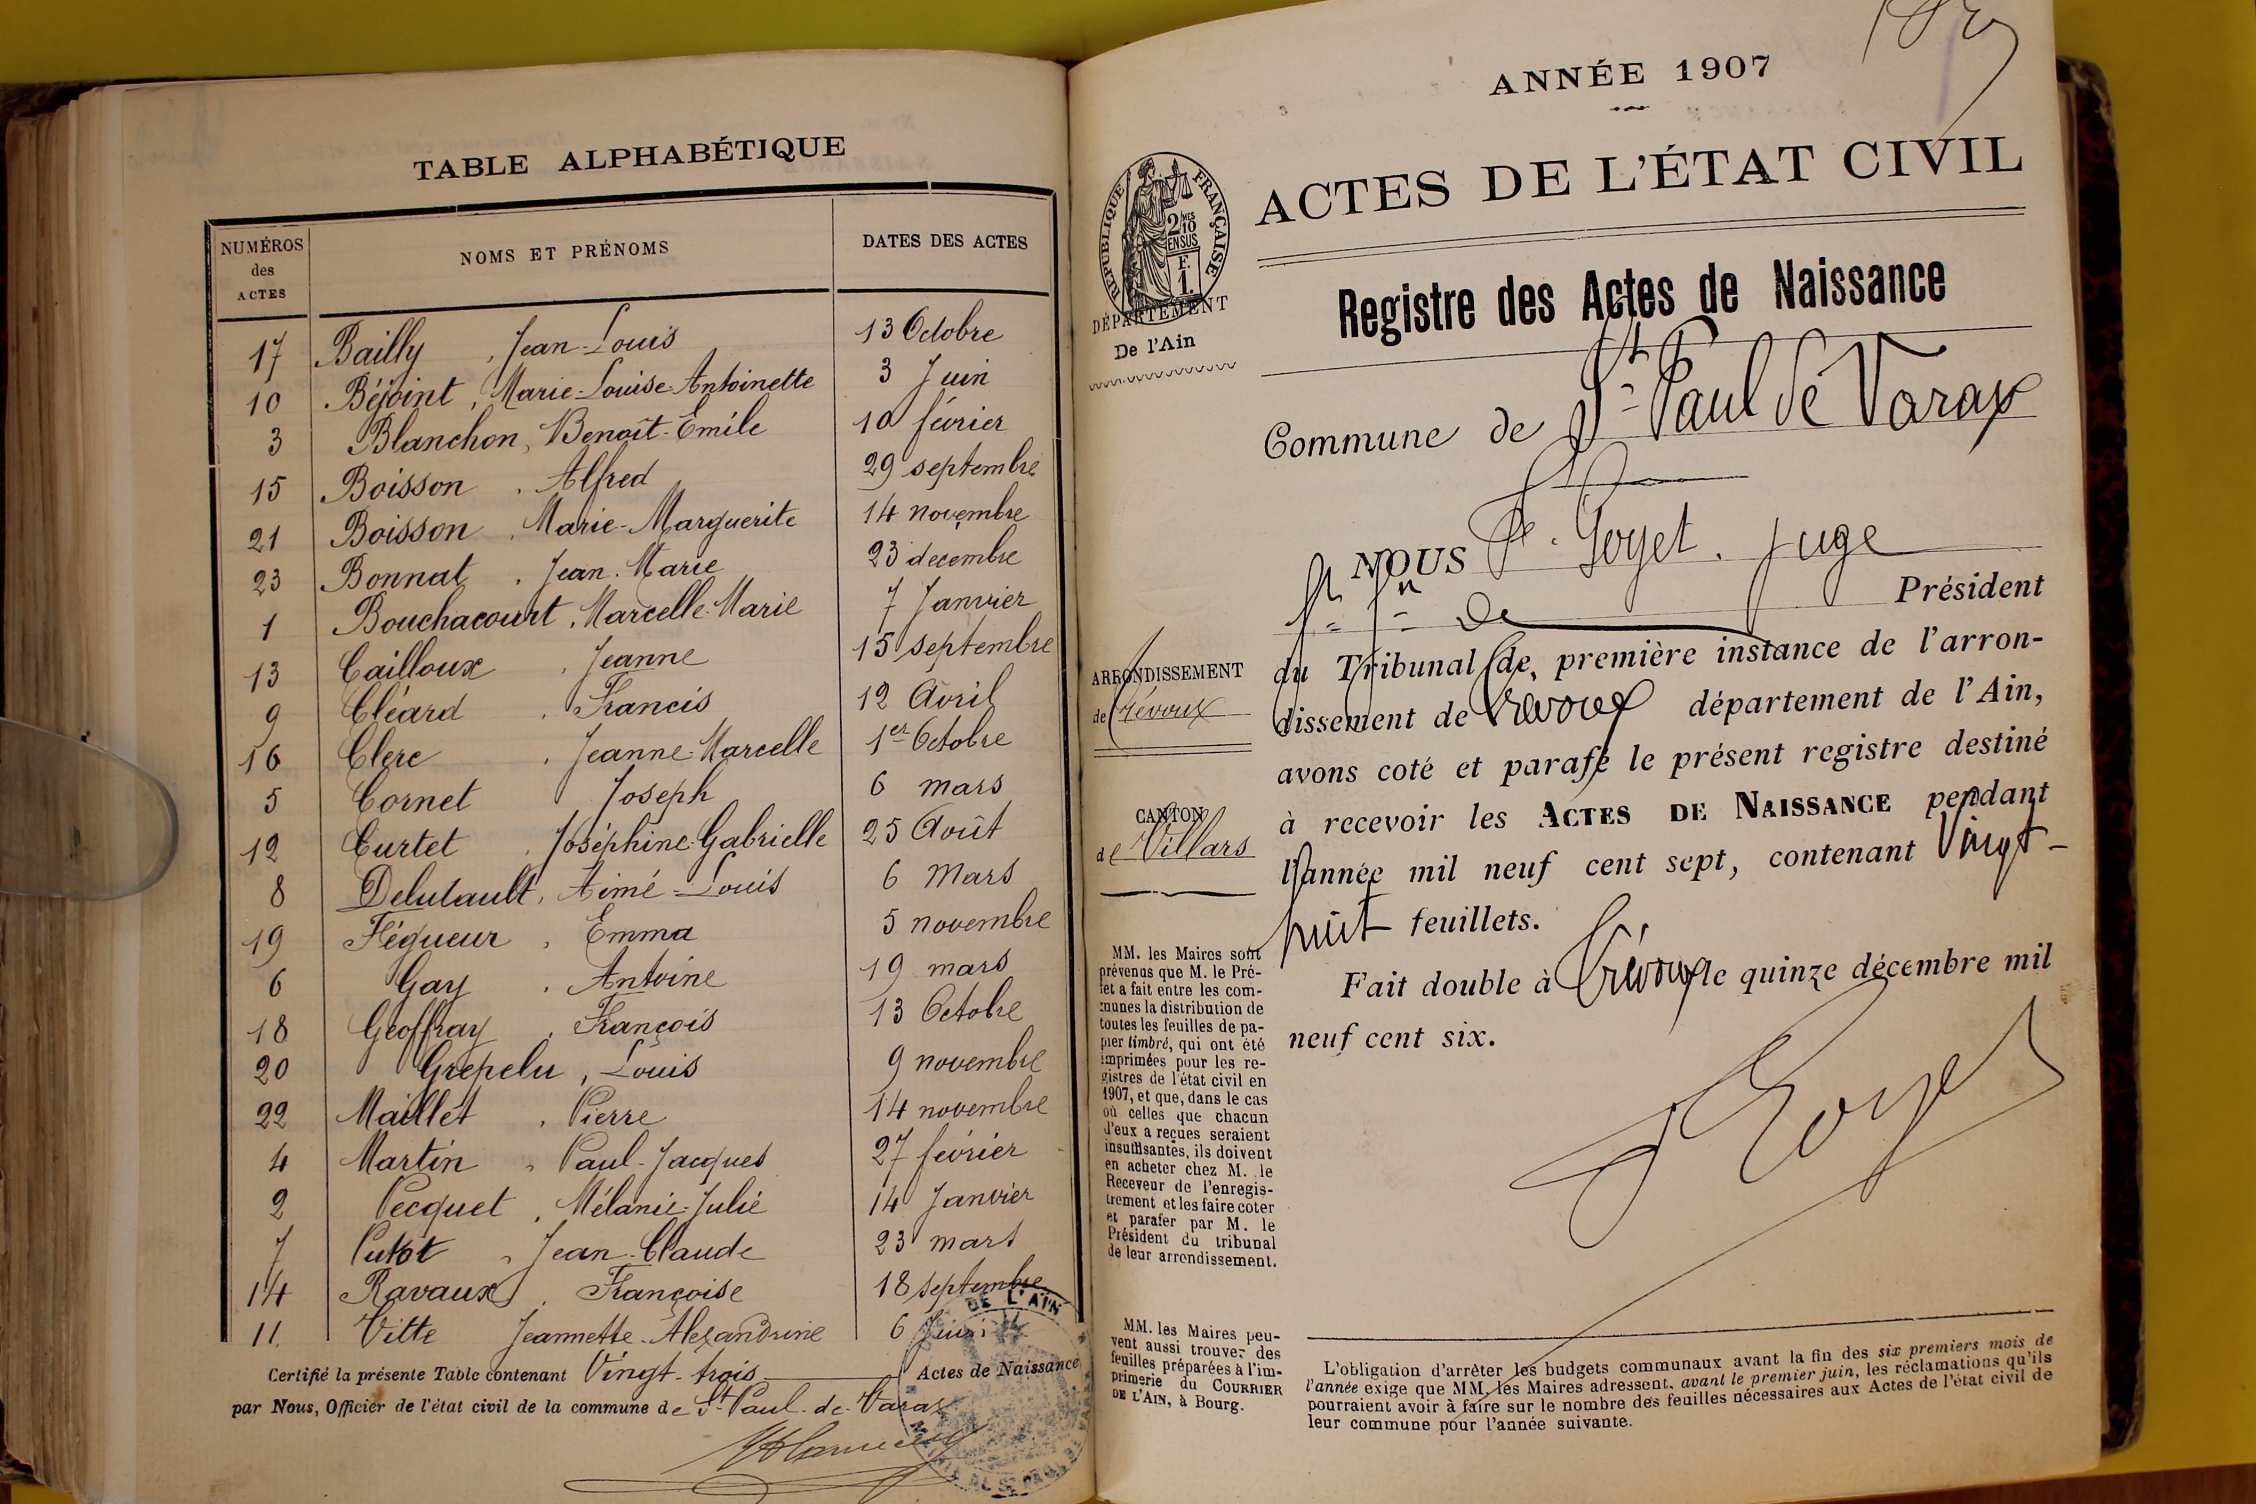 TABLE ALPHABÉTIQUE
NUMÉROS des ACTES NOMS ET PRÉNOMS DATES DES ACTES
17 Bailly, Jean-Louis 13 Octobre
10 Béjoint, Marie-Louise-Antoinette 3 Juin
3 Blanchon, Benoît-Emile 10 février
15 Boisson, Alfred 29 septembre
21 Boisson, Marie-Marguerite 14 novembre
23 Bonnat, Jean-Marie 23 decembre
1 Bouchacourt, Marcelle-Marie 7 Janvier
13 Cailloux, Jeanne 15 septembre
9 Cléard, Francis 12 Avril
16 Clerc, Jeanne-Marcelle 1er Octobre
5 Cornet Joseph 6 mars
12 Curtet, Joséphine-Gabrielle 25 Août
8 Delutault, Aimé-Louis 6 Mars
19 Fégueur, Emma 5 novembre
6 Gay, Antoine 19 mars
18 Geoffray, François 13 Octobre
20 Grepelu, Louis 9 novembre
22 Maillet, Pierre 14 novembre
4 Martin, Paul-Jacques 27 février
2 Pecquet, Mélanie-Julie 14 Janvier
7 Putot, Jean-Claude 23 mars
14 Ravaux, Françoise 18 septembre
11. Vitte Jeannette-Alexandrine 6 Juin
Certifié la présente Table contenant Vingt-trois Actes de Naissance
par Nous, Officier de l'état civil de la commune de St Paul-de-Varax
DE L'AIN
ANNÉE 1907
ACTES DE L'ÉTAT CIVIL
RÉPUBLIQUE FRANÇAISE
2/10 MES
EN SUS
E.
1.
DÉPARTEMENT
De l'Ain
Registre des Actes de Naissance
Commune de St Paul de Varax
NOUS Goyet. Juge
de Président
du Tribunal de première instance de l'arron-
dissement de Trévoux département de l'Ain,
avons coté et parafé le présent registre destiné
à recevoir les ACTES DE NAISSANCE pendant
l'année mil neuf cent sept, contenant Vingt-
huit feuillets.
Fait double à Trévoux le quinze décembre mil
neuf cent six.
Goyet
ARRONDISSEMENT
de Trévoux
CANTON
de Villars
MM. les Maires sont
prévenus que M. le Pré-
fet a fait entre les com-
munes la distribution de
toutes les feuilles de pa-
pier timbré, qui ont été
imprimées pour les re-
gistres de l'état civil en
1907, et que, dans le cas
où celles que chacun
d'eux a reçues seraient
insuffisantes, ils doivent
en acheter chez M. le
Receveur de l'enregis-
trement et les faire coter
et parafer par M. le
Président du tribunal
de leur arrondissement.
MM. les Maires peu-
vent aussi trouver des
feuilles préparées à l'im-
primerie du COURRIER
DE L'AIN, à Bourg.
L'obligation d'arrêter les budgets communaux avant la fin des six premiers mois de
l'année exige que MM. les Maires adressent, avant le premier juin, les réclamations qu'ils
pourraient avoir à faire sur le nombre des feuilles nécessaires aux Actes de l'état civil de
leur commune pour l'année suivante.